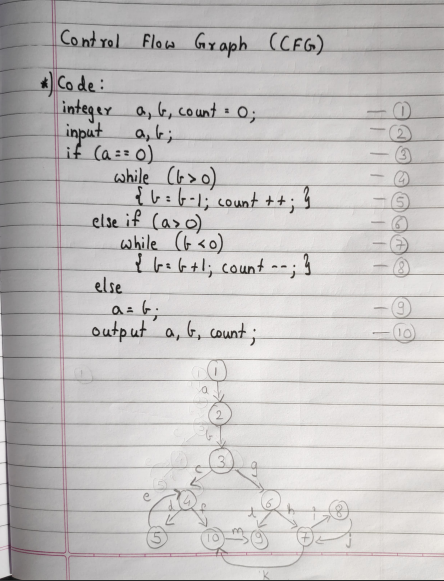 Control Flow Graph (CFG)
*) Code:
integer a, b, count = 0; — ①
input a, b; — ②
if (a == 0) — ③
while (b > 0) — ④
{ b = b-1; count ++; } — ⑤
else if (a > 0) — ⑥
while (b < 0) — ⑦
{ b = b+1; count --; } — ⑧
else
a = b; — ⑨
output a, b, count; — ⑩
①
a
②
b
③
c g
e ④ ⑥ ⑧
d f l h i
⑤ ⑩ m ⑨ ⑦ j
k